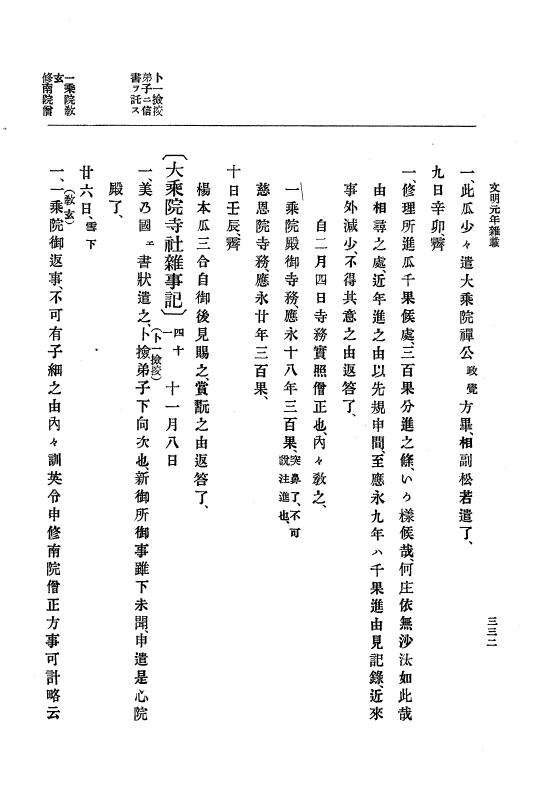 文明元年雜載
三三二
一、此瓜少々遣大乘院禪公政覺方畢、相副松若遣了、
九日辛卯、霽
一、修理所進瓜千果候處、三百果分進之條、いろ樣候哉、何庄依無沙汰如此哉
由相尋之處、近年進之由以先規申間、至應永九年ハ千果進由見記錄、近來
事外減少、不得其意之由返答了、
自二月四日寺務實照僧正也、內々敎之、
一乘院殿御寺務、應永十八年三百果、突鼻了、不可說注進也、
慈恩院寺務、應永廿年三百果、
十日壬辰、霽
楊本瓜三合自御後見賜之、賞翫之由返答了、
〔大乘院寺社雜事記〕四十一 十一月八日
一、美乃國ェ書狀遣之、卜撿弟子下向次也、新御所御事雖下未聞、申遣是心院
(卜一撿挍)
殿了、
廿六日、雪下
(敎玄)
一、一乘院御返事、不可有子細之由內々訓英令申修南院僧正方事可計略云
卜一撿挍
弟子ニ信
書ヲ託ス
一乘院敎
玄
修南院僧